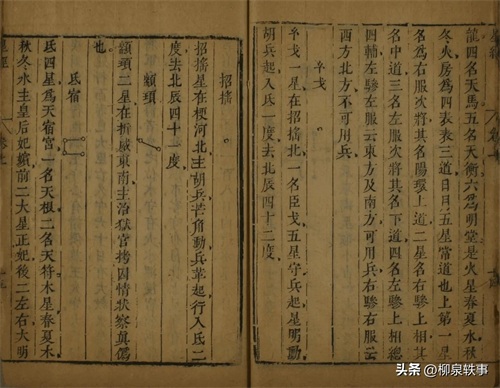 龍四名天馬五名天衡六為明堂是火星春夏水秋
冬火房為四表表三道日月五星常道也上第一星
名為右服次將其名陽環上道二星名右驂上相其
名中道三名左服次將其名下道四名左驂上相總
四輔左驂左服云東方及南方可用兵右驂右服云
西方北方不可用兵
玄戈
玄戈一星在招搖北一名臣戈五星守兵起星明動
胡兵起入氐一度去北辰四十二度
招搖
招搖星在梗河北主胡兵芒角動兵革起行入氐二
度去北辰四十一度
頡頏
頡頏二星在折威東南主治獄官拷囚情狀察真偽
也
氐宿
氐四星為天宿宮一名天根二名天符木星春夏木
秋冬水主皇后妃嬪前二大星正妃後二左右大明
头条 @柳泉轶事